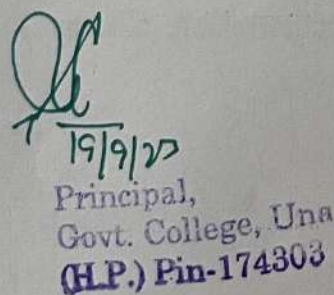 19/9/23
Principal,
Govt. College, Una
(H.P.) Pin-174303